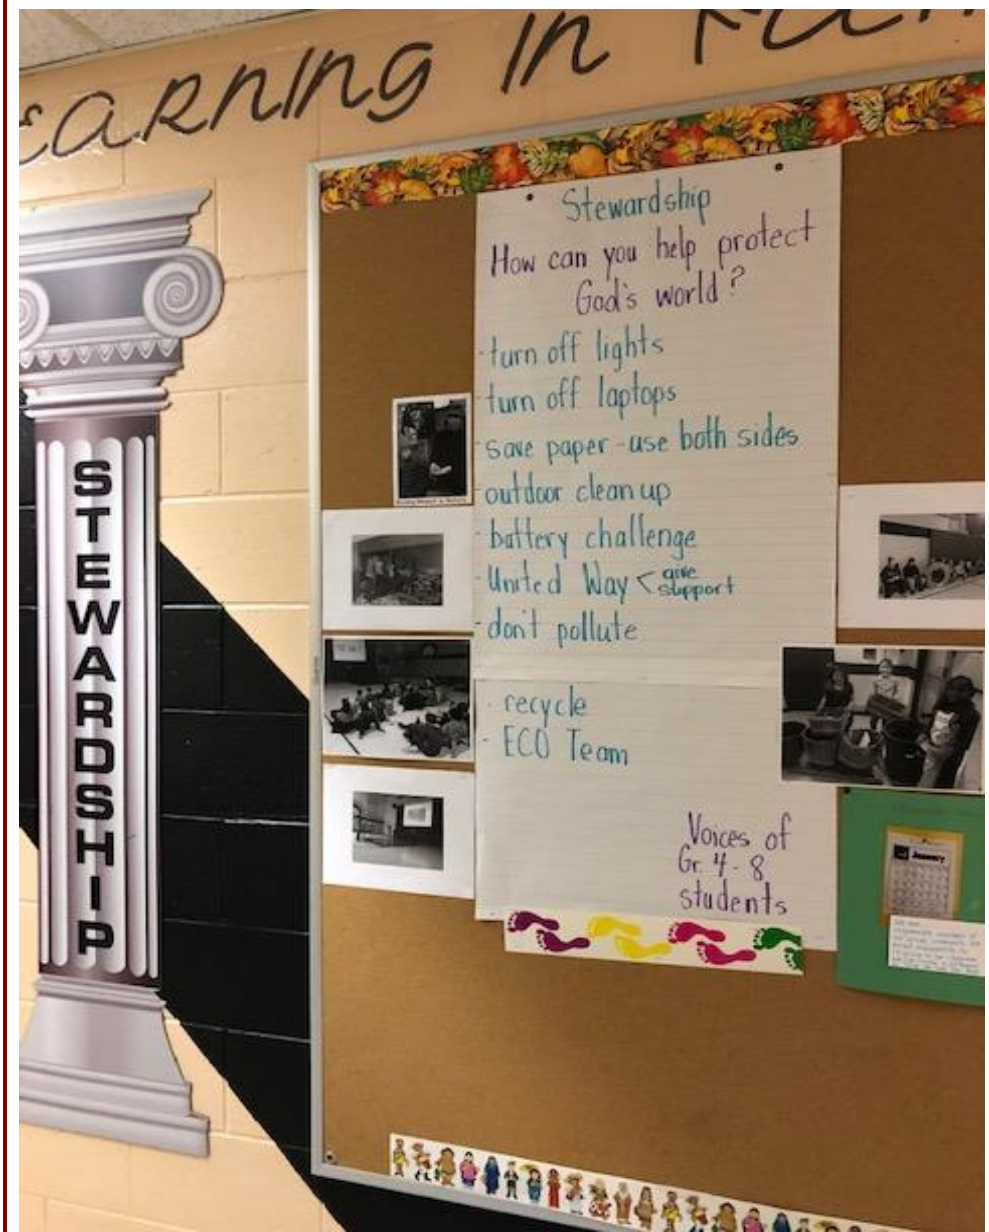 LEARNING IN
STEWARDSHIP
Stewardship
How can you help protect
God's world?
- turn off lights
- turn off laptops
- save paper - use both sides
- outdoor clean up
- battery challenge
- United Way < give support
- don't pollute
- recycle
- ECO Team
Voices of
Gr. 4 - 8
students
January